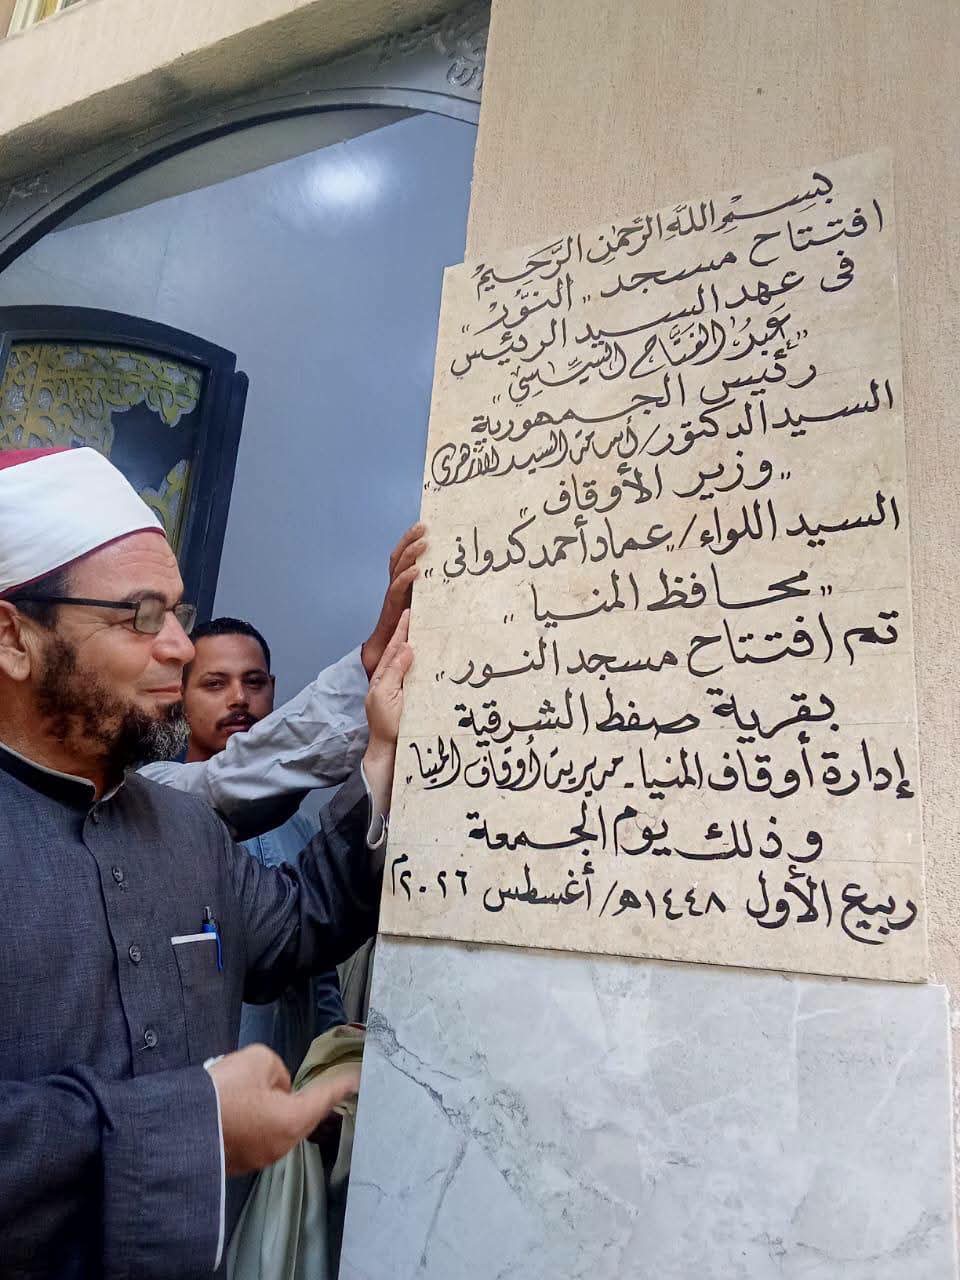 بِسْمِ اللَّهِ الرَّحْمٰنِ الرَّحِيمْ
افتتاح مسجد "النُّوْرْ"
فى عهد السيد الرئيس
"عَبدُ الفَتَّاح السِّيسِي"
رئيس الجمهورية
السيد الدكتور/ أسامة السيد الأزهري"
"وزير الأوقاف"
السيد اللواء/ "عماد أحمد كدواني"
"محافظ المنيا"
تم افتتاح مسجد النور"
بقرية صفط الشرقية
إدارة أوقاف المنيا - مديرية أوقاف المنيا"
وذلك يوم الجمعة
ربيع الأول ١٤٤٨هـ/ أغسطس ٢٠٢٦م